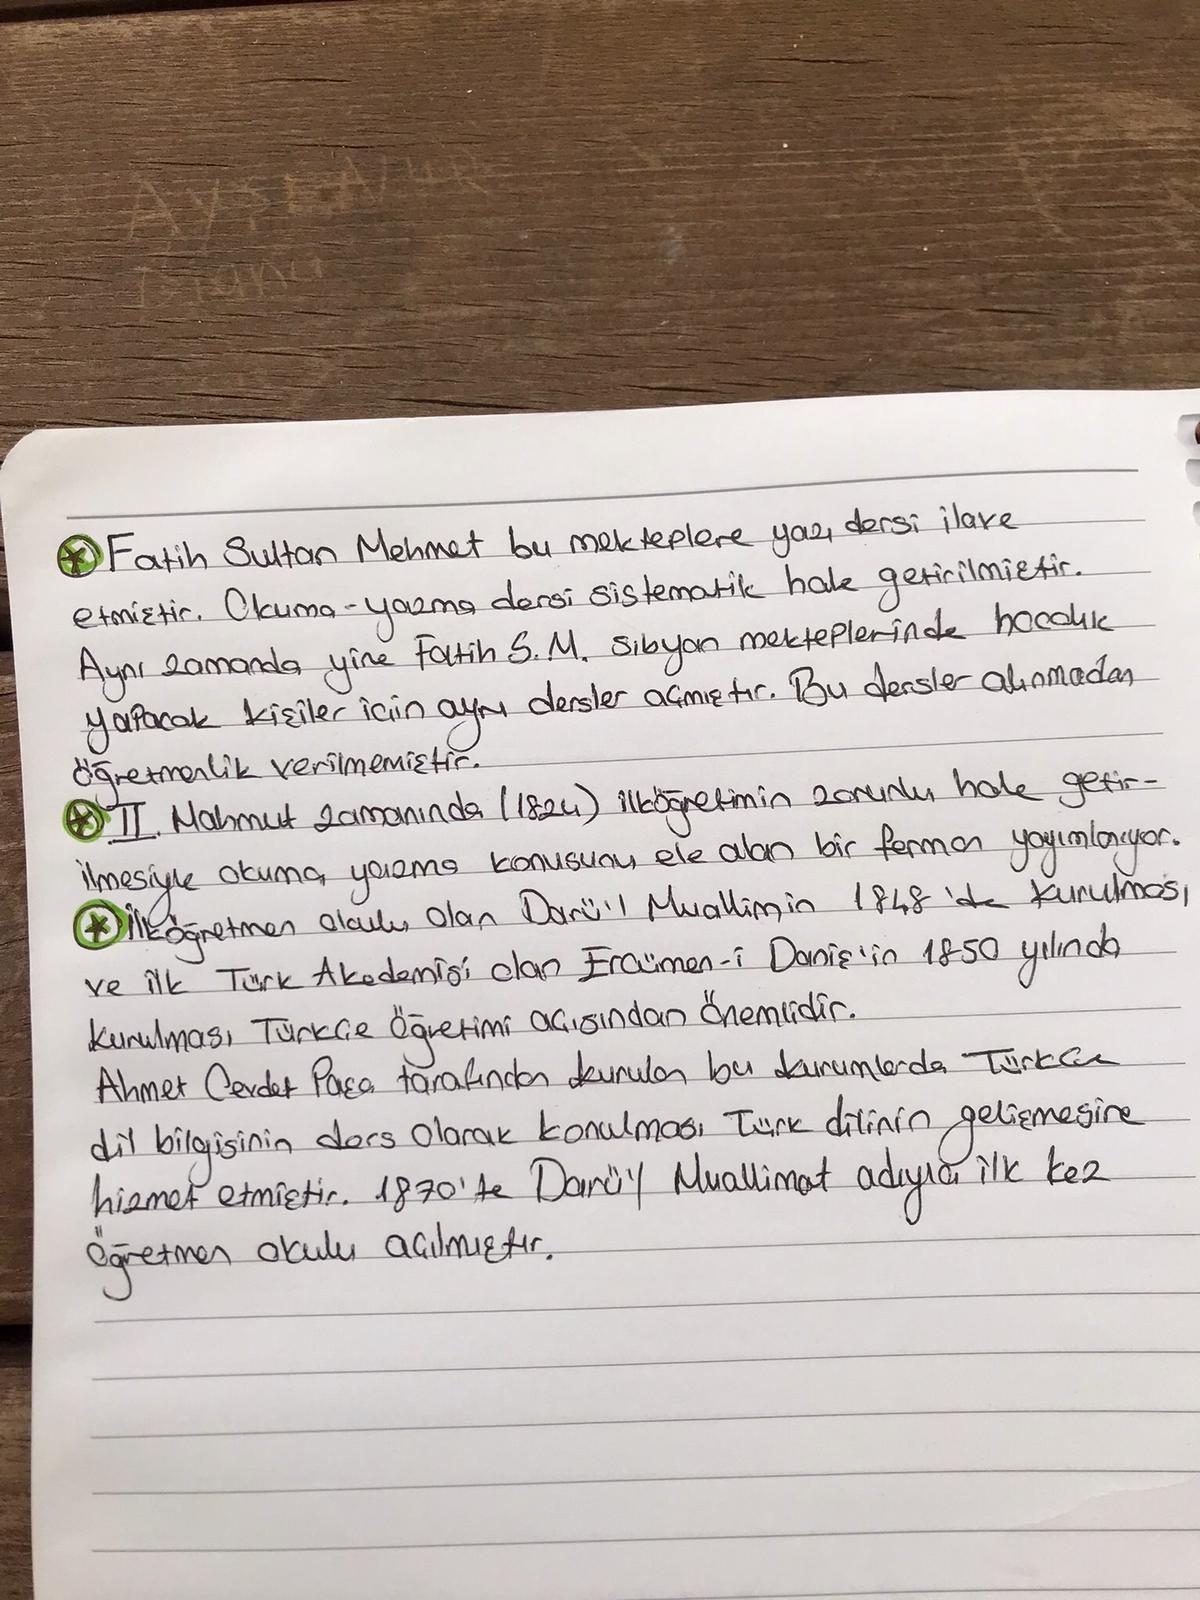 Fatih Sultan Mehmet bu mekteplere yazı dersi ilave
etmiştir. Okuma-yazma dersi sistematik hale getirilmiştir.
Aynı zamanda yine Fatih S.M. Sıbyan mekteplerinde hocalık
yapacak kişiler için ayrı dersler açmıştır. Bu dersler alınmadan
öğretmenlik verilmemiştir.
II. Mahmut zamanında (1824) ilköğretimin zorunlu hale getir-
ilmesiyle okuma, yazma konusunu ele alan bir ferman yayımlanıyor.
İlk öğretmen okulu olan Darü'l Muallimin 1848'de kurulması
ve ilk Türk Akademisi olan Encümen-i Daniş'in 1850 yılında
kurulması Türkçe Öğretimi açısından Önemlidir.
Ahmet Cevdet Paşa tarafından kurulan bu kurumlarda Türkçe
dil bilgisinin ders olarak konulması Türk dilinin gelişmesine
hizmet etmiştir. 1870'te Darü'l Muallimat adıyla ilk kez
Öğretmen okulu açılmıştır.